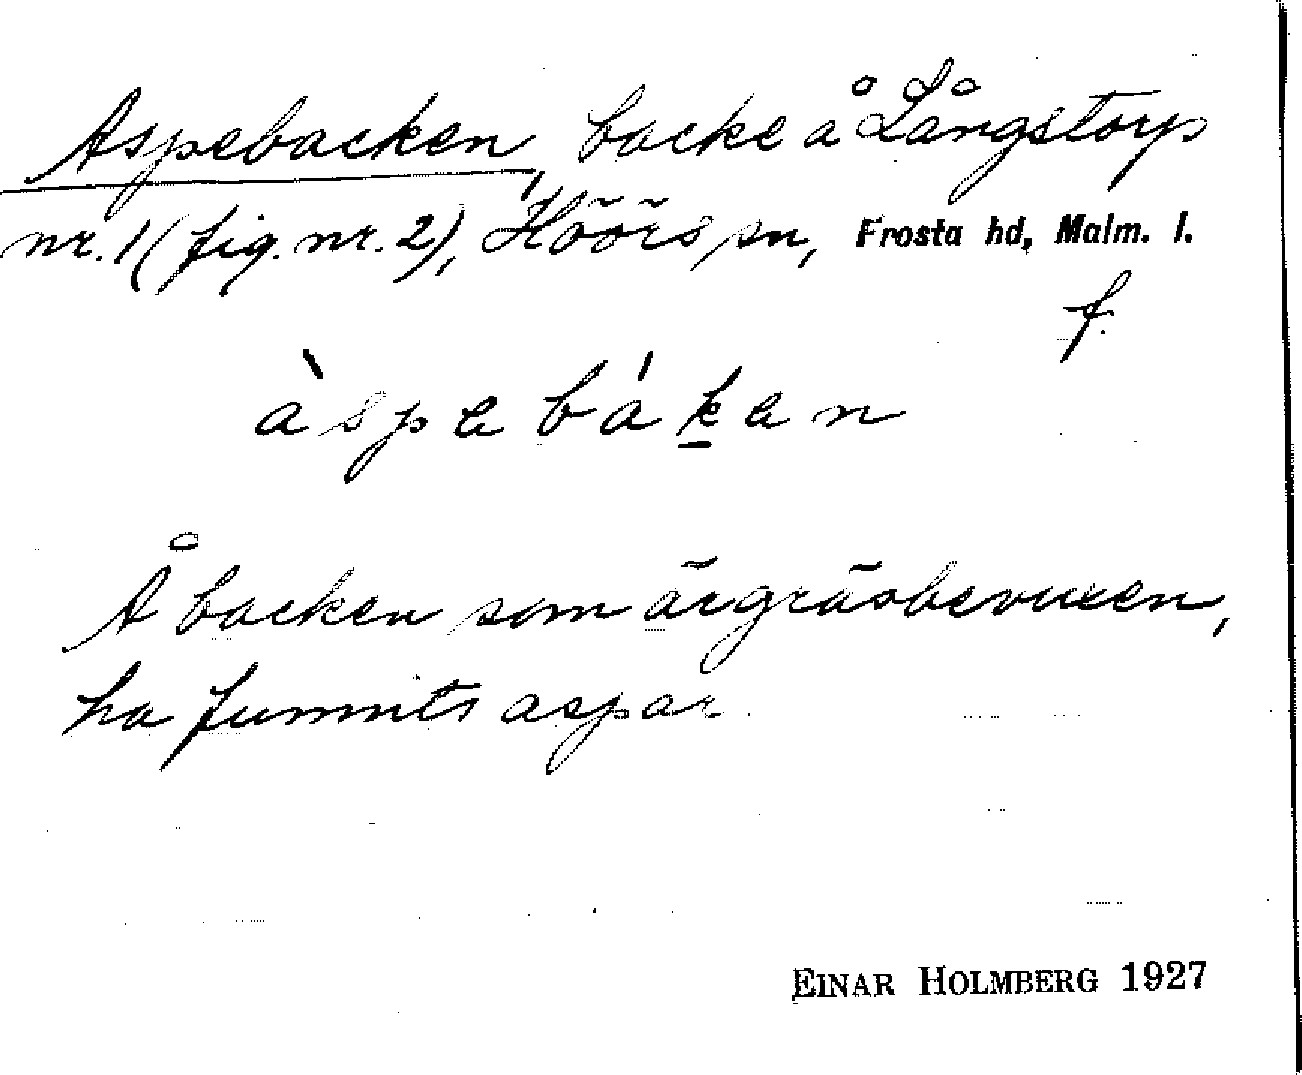 Aspebacken, backe å Långstorp
nr. 1 (fig. nr. 2), Höörs sn, Frosta hd, Malm. l.
f.
àspebáken
Å backen som är gräsbevuxen,
ha funnits aspar.
EINAR HOLMBERG 1927